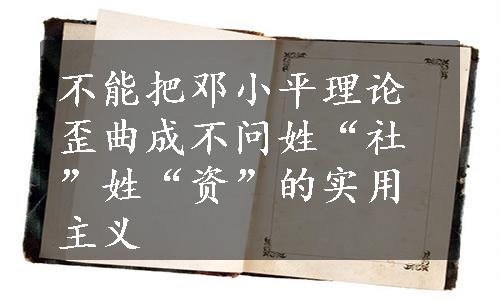 不能把邓小平理论
歪曲成不问姓“社
”姓“资”的实用
主义